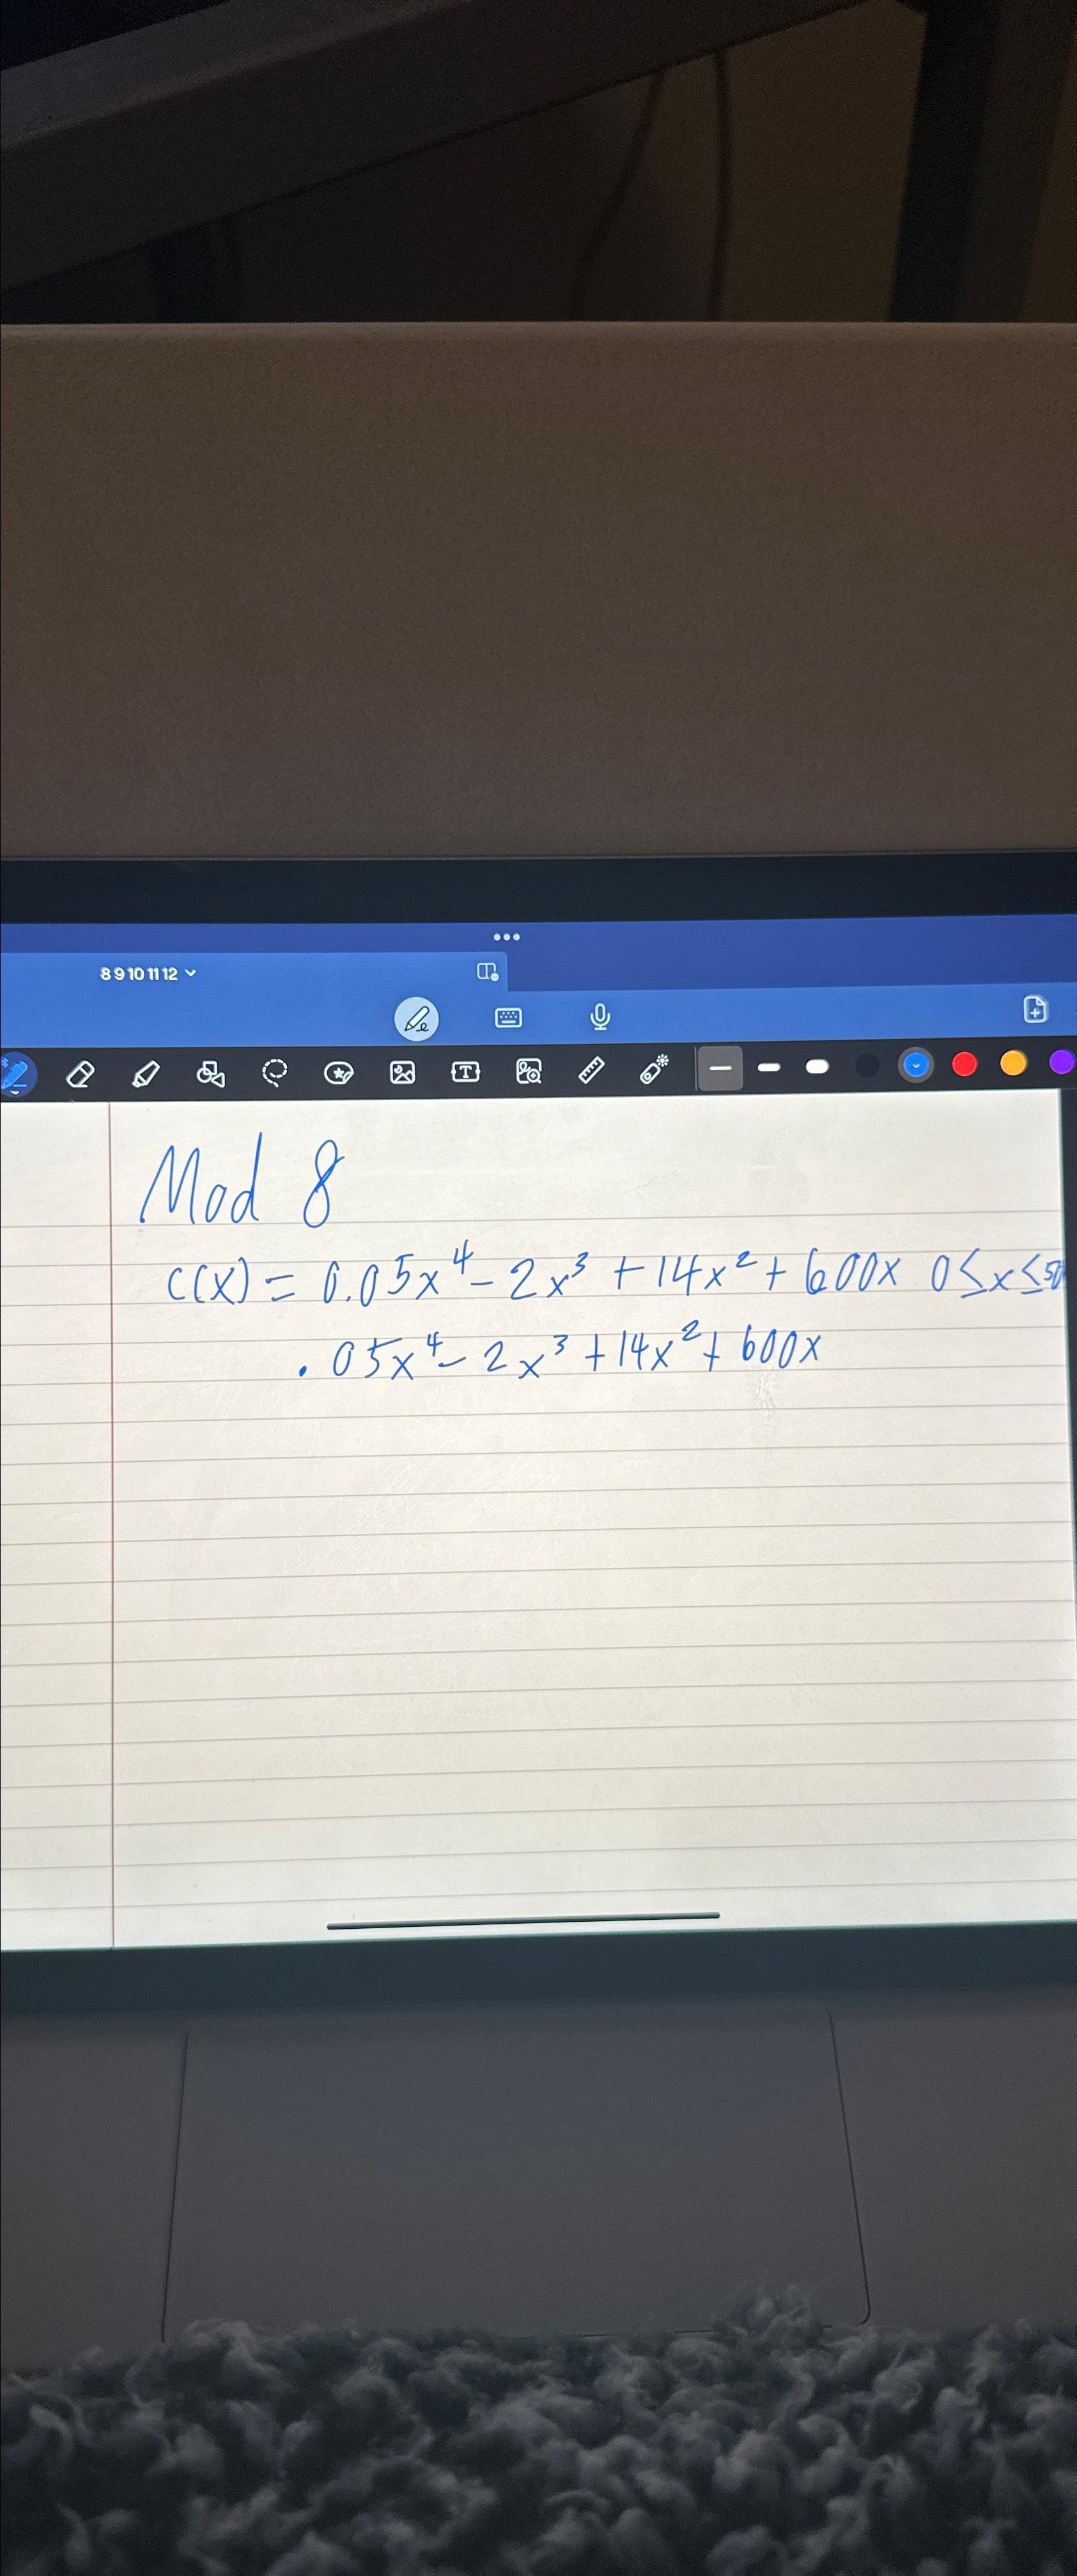 8 9 10 11 12
Mod 8
C(x) = 0.05x⁴ - 2x³ + 14x² + 600x 0 ≤ x ≤ 50
.05x⁴ - 2x³ + 14x² + 600x